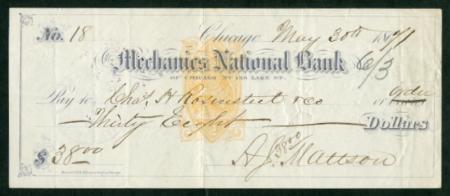 No. 18 Chicago May 30th 1871
Mechanics National Bank 6/3
OF CHICAGO
Pay to Chas. H Rosensteel & Co or order
Thirty Eight Dollars
$ 38.00 38.00 A.J. Mattson